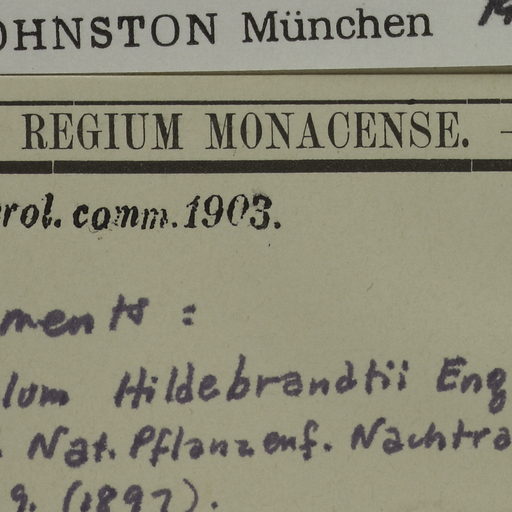 OHNSTON München 19
REGIUM MONACENSE. –
rol. comm. 1903.
ments :
lum Hildebrandtii Eng
. Nat. Pflanzenf. Nachtra
9. (1897).